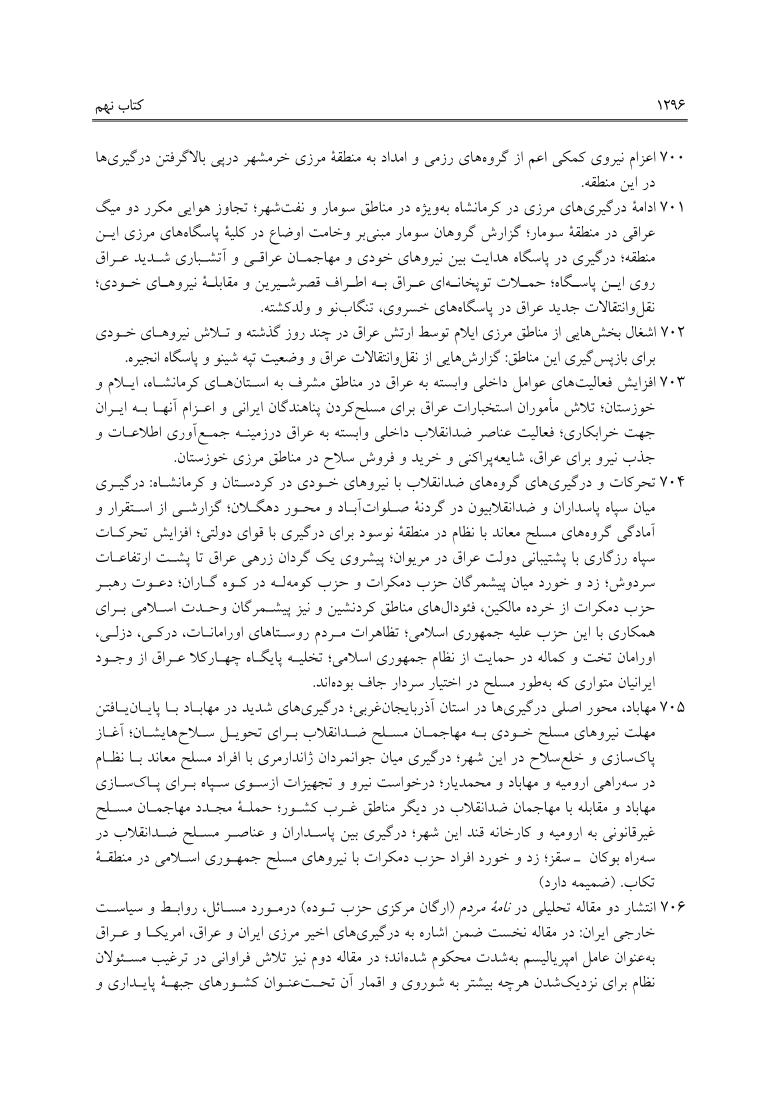 ۱۲۹۶ کتاب نهم
۷۰۰ اعزام نیروی کمکی اعم از گروه‌های رزمی و امداد به منطقهٔ مرزی خرمشهر درپی بالاگرفتن درگیری‌ها
در این منطقه.
۷۰۱ ادامهٔ درگیری‌های مرزی در کرمانشاه به‌ویژه در مناطق سومار و نفت‌شهر؛ تجاوز هوایی مکرر دو میگ
عراقی در منطقهٔ سومار؛ گزارش گروهان سومار مبنی‌بر وخامت اوضاع در کلیهٔ پاسگاه‌های مرزی ایـن
منطقه؛ درگیری در پاسگاه هدایت بین نیروهای خودی و مهاجمـان عراقـی و آتشـباری شـدید عـراق
روی ایـن پاسـگاه؛ حمـلات توپخانـه‌ای عـراق بـه اطـراف قصرشـیرین و مقابلـهٔ نیروهـای خـودی؛
نقل‌وانتقالات جدید عراق در پاسگاه‌های خسروی، تنگاب‌نو و ولدکشته.
۷۰۲ اشغال بخش‌هایی از مناطق مرزی ایلام توسط ارتش عراق در چند روز گذشته و تـلاش نیروهـای خـودی
برای بازپس‌گیری این مناطق: گزارش‌هایی از نقل‌وانتقالات عراق و وضعیت تپه شینو و پاسگاه انجیره.
۷۰۳ افزایش فعالیت‌های عوامل داخلی وابسته به عراق در مناطق مشرف به اسـتان‌هـای کرمانشـاه، ایـلام و
خوزستان؛ تلاش مأموران استخبارات عراق برای مسلح‌کردن پناهندگان ایرانی و اعـزام آنهـا بـه ایـران
جهت خرابکاری؛ فعالیت عناصر ضدانقلاب داخلی وابسته به عراق درزمینـه جمـع‌آوری اطلاعـات و
جذب نیرو برای عراق، شایعه‌پراکنی و خرید و فروش سلاح در مناطق مرزی خوزستان.
۷۰۴ تحرکات و درگیری‌های گروه‌های ضدانقلاب با نیروهای خـودی در کردسـتان و کرمانشـاه: درگیـری
میان سپاه پاسداران و ضدانقلابیون در گردنهٔ صـلوات‌آبـاد و محـور دهگـلان؛ گزارشـی از اسـتقرار و
آمادگی گروه‌های مسلح معاند با نظام در منطقهٔ نوسود برای درگیری با قوای دولتی؛ افزایش تحرکـات
سپاه رزگاری با پشتیبانی دولت عراق در مریوان؛ پیشروی یک گردان زرهی عراق تا پشـت ارتفاعـات
سردوش؛ زد و خورد میان پیشمرگان حزب دمکرات و حزب کومه‌لـه در کـوه گـاران؛ دعـوت رهبـر
حزب دمکرات از خرده مالکین، فئودال‌های مناطق کردنشین و نیز پیشـمرگان وحـدت اسـلامی بـرای
همکاری با این حزب علیه جمهوری اسلامی؛ تظاهرات مـردم روسـتاهای اورامانـات، درکـی، دزلـی،
اورامان تخت و کماله در حمایت از نظام جمهوری اسلامی؛ تخلیـه پایگـاه چهـارکلا عـراق از وجـود
ایرانیان متواری که به‌طور مسلح در اختیار سردار جاف بوده‌اند.
۷۰۵ مهاباد، محور اصلی درگیری‌ها در استان آذربایجان‌غربی؛ درگیری‌های شدید در مهابـاد بـا پایـان‌یـافتن
مهلت نیروهای مسلح خـودی بـه مهاجمـان مسـلح ضـدانقلاب بـرای تحویـل سـلاح‌هایشـان؛ آغـاز
پاک‌سازی و خلع‌سلاح در این شهر؛ درگیری میان جوانمردان ژاندارمری با افراد مسلح معاند بـا نظـام
در سه‌راهی ارومیه و مهاباد و محمدیار؛ درخواست نیرو و تجهیزات ازسـوی سـپاه بـرای پـاک‌سـازی
مهاباد و مقابله با مهاجمان ضدانقلاب در دیگر مناطق غـرب کشـور؛ حملـهٔ مجـدد مهاجمـان مسـلح
غیرقانونی به ارومیه و کارخانه قند این شهر؛ درگیری بین پاسـداران و عناصـر مسـلح ضـدانقلاب در
سه‌راه بوکان ـ سقز؛ زد و خورد افراد حزب دمکرات با نیروهای مسلح جمهـوری اسـلامی در منطقـهٔ
تکاب. (ضمیمه دارد)
۷۰۶ انتشار دو مقاله تحلیلی در نامهٔ مردم (ارگان مرکزی حزب تـوده) درمـورد مسـائل، روابـط و سیاسـت
خارجی ایران: در مقاله نخست ضمن اشاره به درگیری‌های اخیر مرزی ایران و عراق، امریکـا و عـراق
به‌عنوان عامل امپریالیسم به‌شدت محکوم شده‌اند؛ در مقاله دوم نیز تلاش فراوانی در ترغیب مسـئولان
نظام برای نزدیک‌شدن هرچه بیشتر به شوروی و اقمار آن تحـت‌عنـوان کشـورهای جبهـهٔ پایـداری و